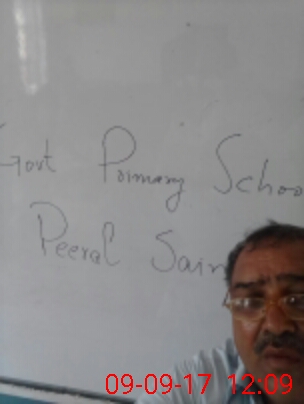 Govt Primary School
Peeral Sain
09-09-17 12:09